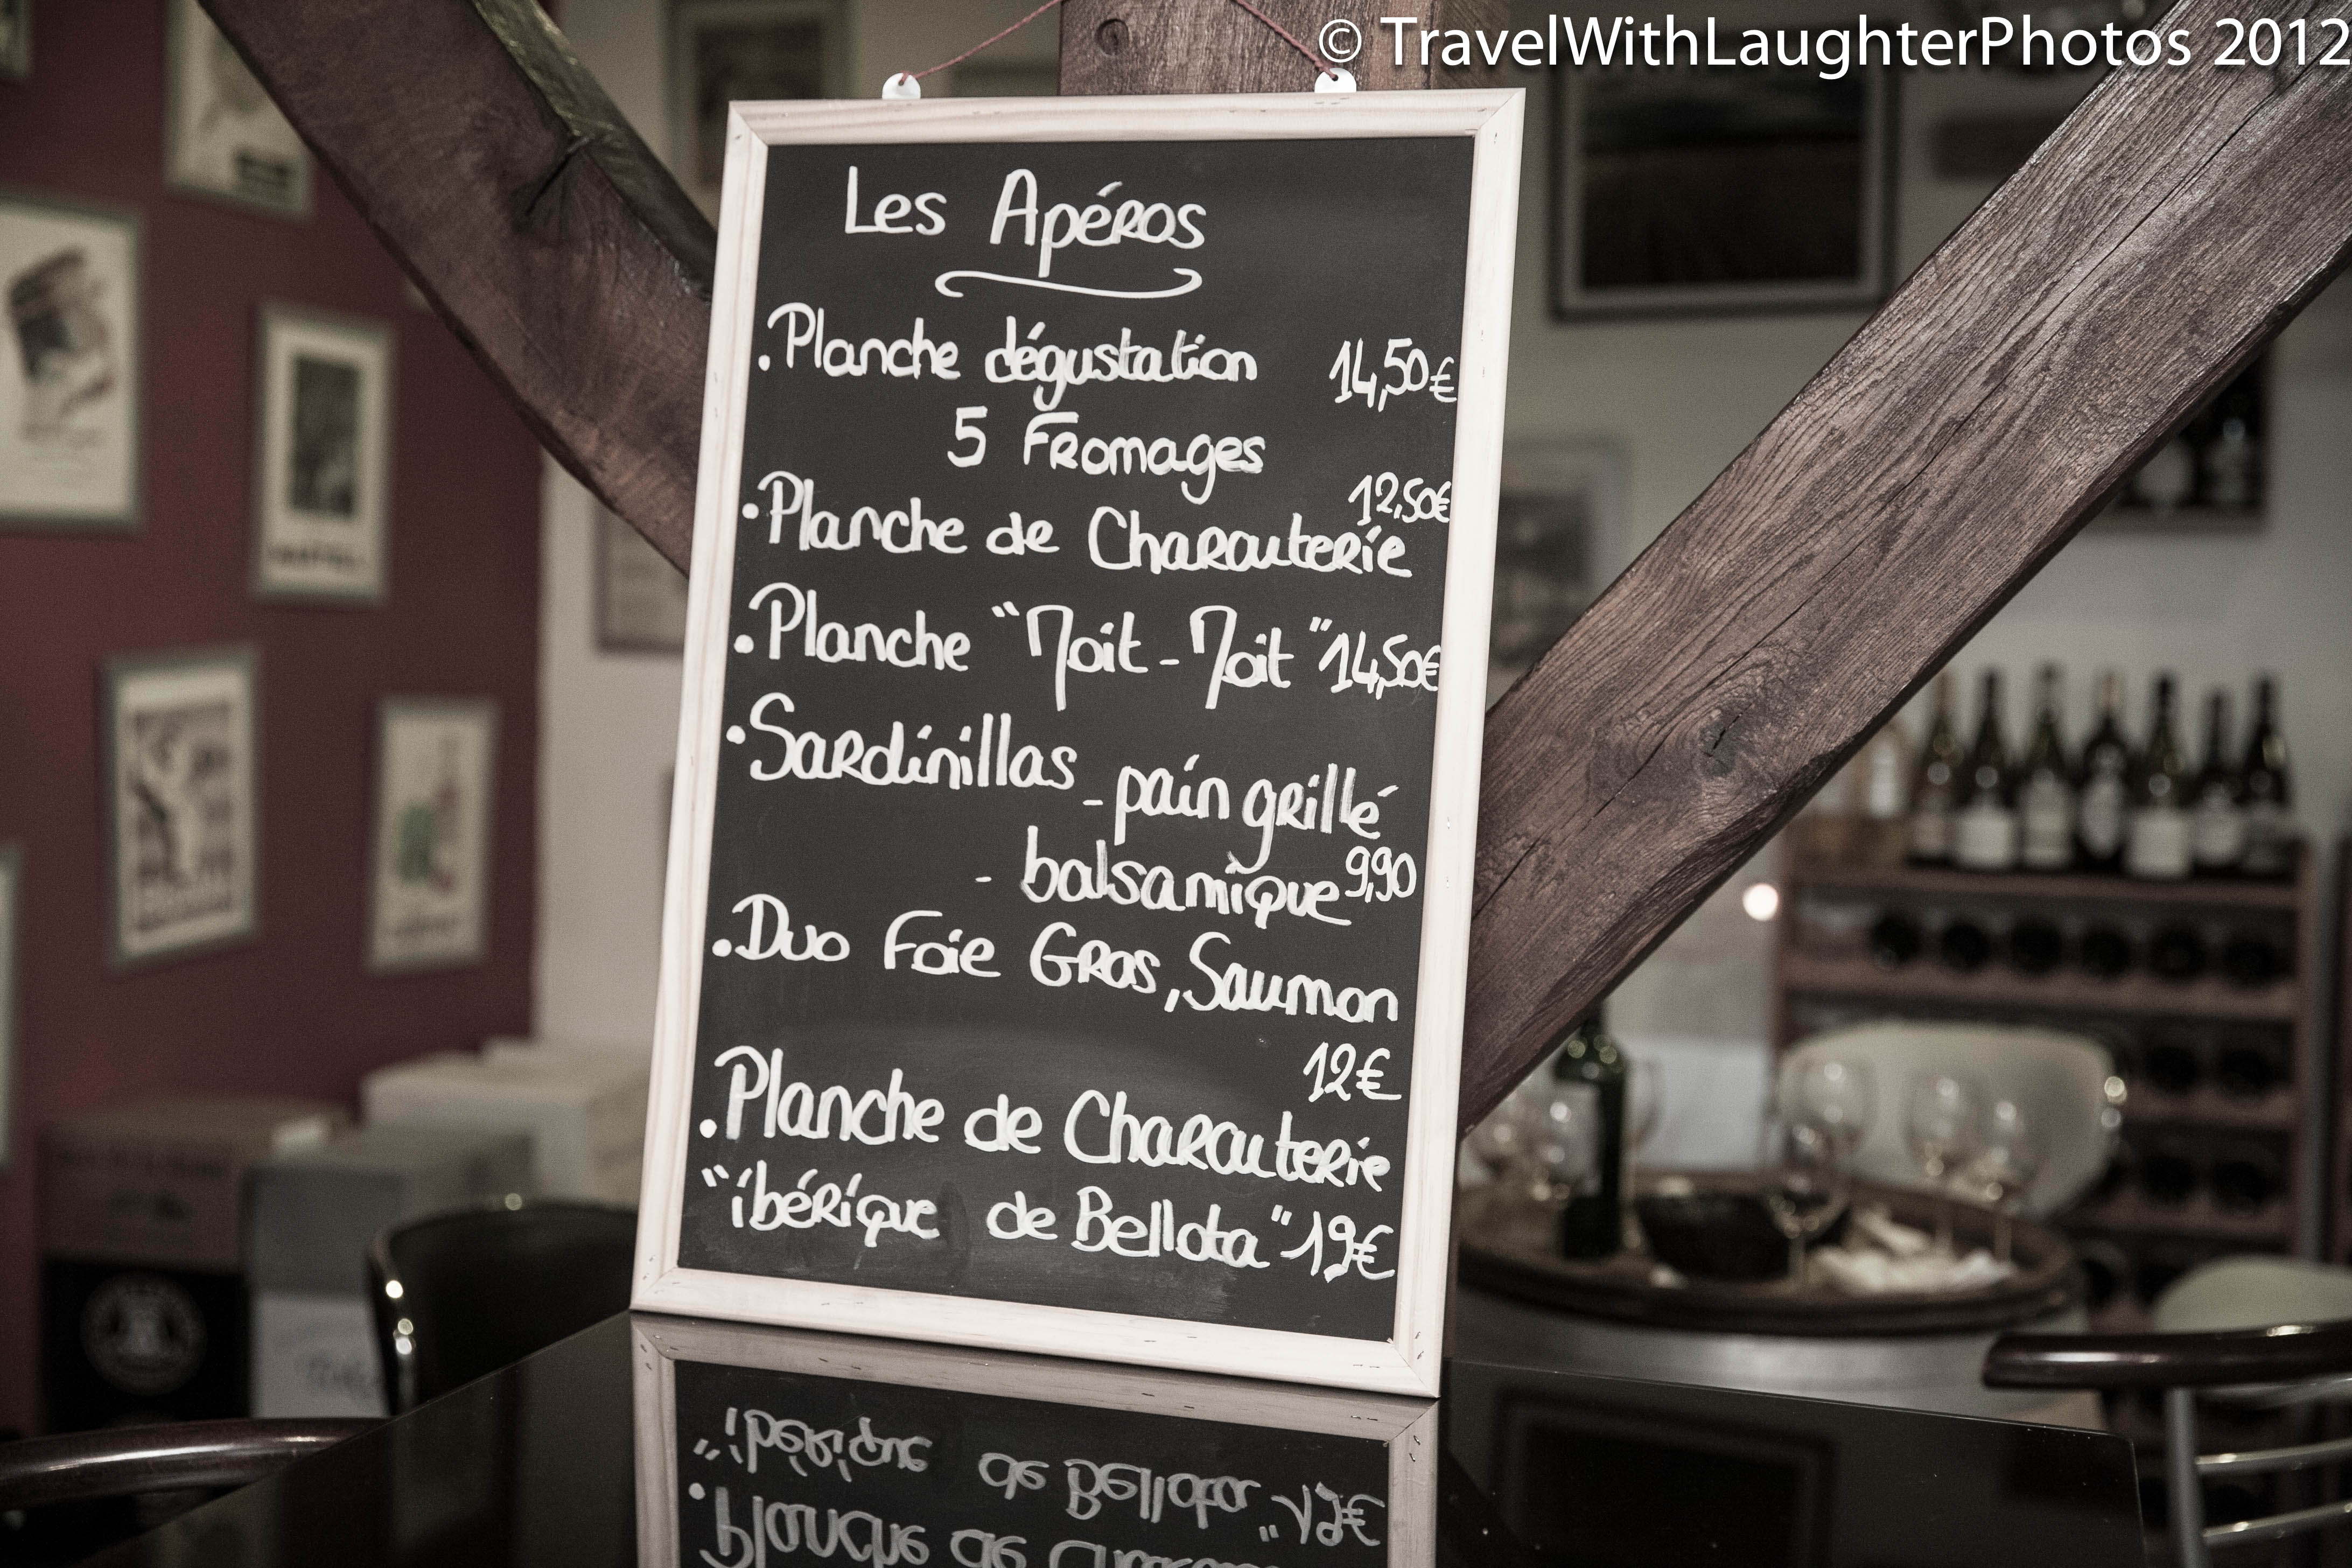 © TravelWithLaughterPhotos 2012
Les Apéros
.Planche dégustation 14,50€
5 Fromages
12,50€
.Planche de Charcuterie
.Planche "Moit-Moit" 14,50€
.Sardinillas - pain grillé
- balsamique 9,90
.Duo Foie Gras, Saumon
12€
.Planche de Charcuterie
"ibérique de Bellota" 19€